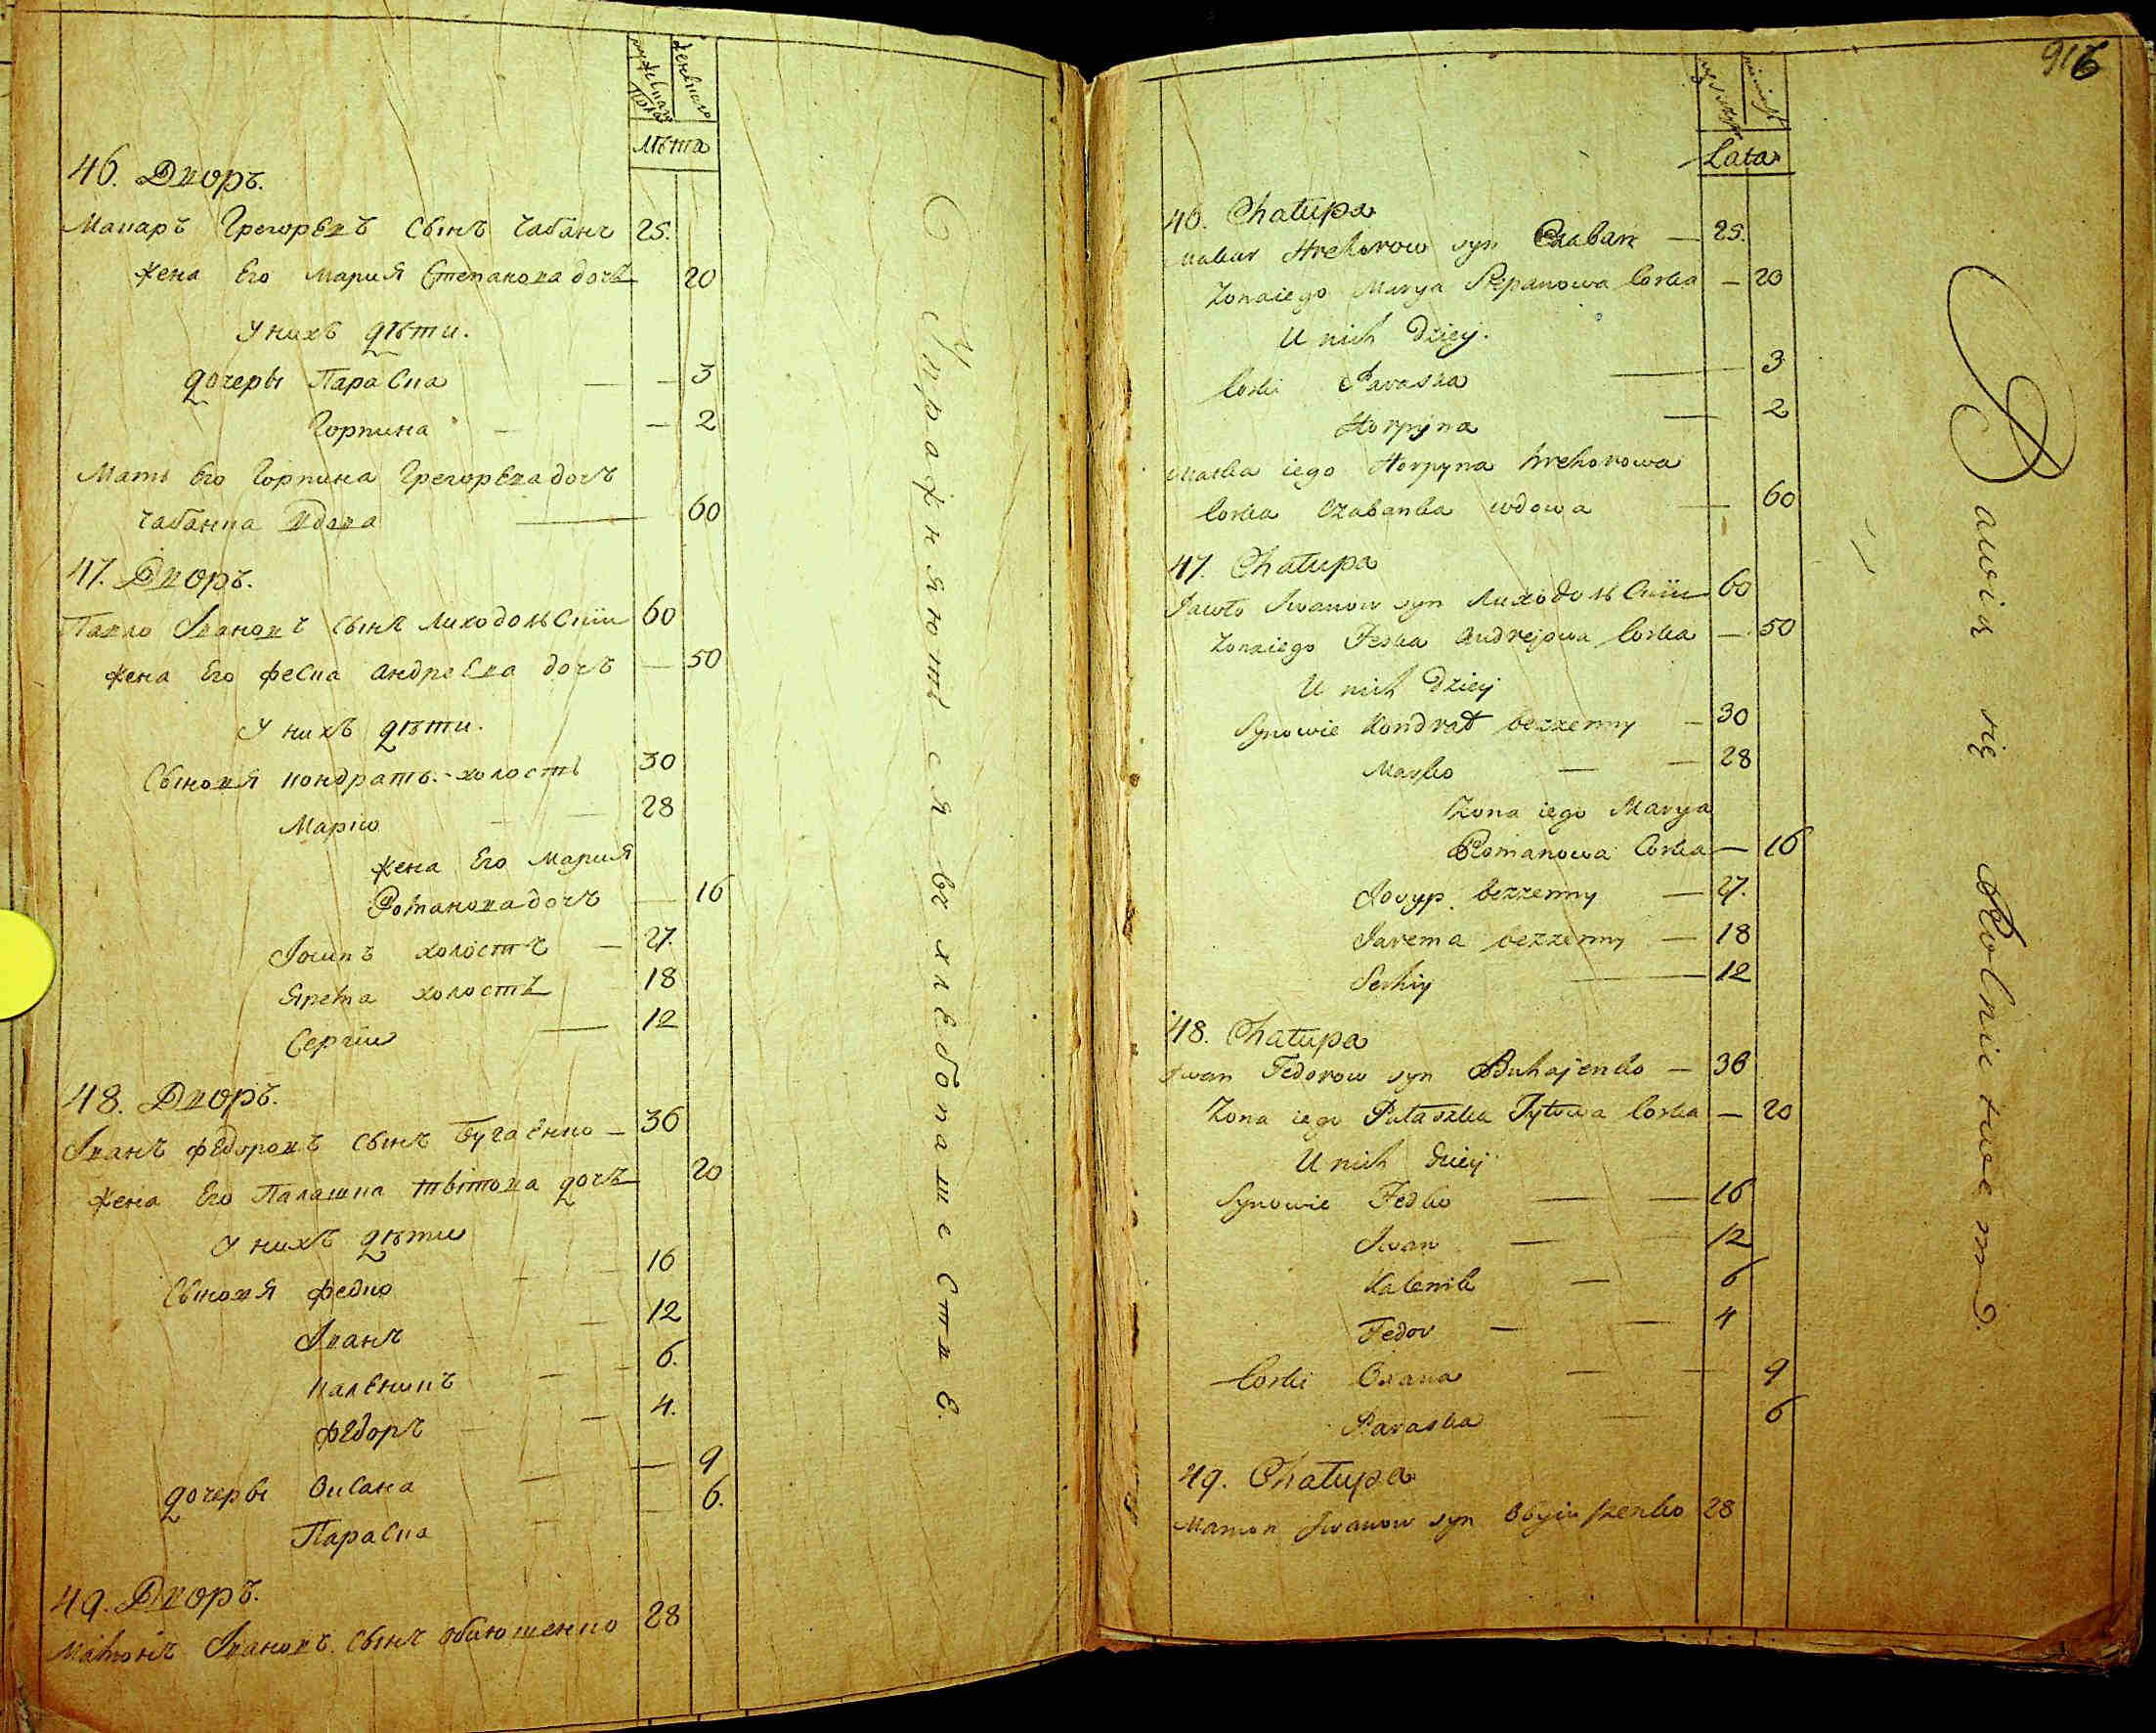 мужеска пола
женска
лѣта
46. Дворъ.
Макаръ Грегорѣвъ сынъ Чабанъ 25.
жена Его Мария Степанова дочъ 20
У нихъ дѣти.
дочеры Параска — 3
Горпина — 2
Мать Его Горпина Грегорѣва дочъ
Чабанка вдова — 60
47. Дворъ.
Павло Ивановъ сынъ Лиходольскии 60
жена Его Феска Андреева дочъ — 50
У нихъ дѣти.
Сыновя Кондратъ - холостъ 30
Марко — 28
жена Его Мария
Романова дочъ — 16
Iосипъ холостъ — 27.
Ярема холостъ 18
Сергiи — 12
48. Дворъ.
Iванъ Федоровъ сынъ Бугаенко — 36
жена Его Палашка Тытова дочъ 20
У нихъ дѣти
Сыновя Федко — 16
Iванъ — 12
Каленикъ — 6.
Федоръ — 4.
дочеры Оксана — 9
Параска — 6.
49. Дворъ.
Мамонъ Iвановъ сынъ Обиюшенко 28
Упражняются въ хлебопашестве.
916
Lata
46. Chałupa
Makar Hrehorow syn Czaban — 25.
Zona iego Marya Stepanowa Corka — 20
U nich dziey.
Corki Paraska — 3
Horpyna — 2
Matka iego Horpyna Hrehorowa
Corka Czabanka wdowa — 60
47. Chałupa
Pawło Iwanow syn Лиходольскiи 60
Zona iego Feska Andrejowa Corka — 50
U nich dziey
Synowie Kondrat bezzenny — 30
Marko — 28
Zona iego Marya
Romanowa Corka — 16
Josyp bezzenny — 27.
Jarema bezzenny — 18
Serhiy — 12
48. Chałupa
Iwan Fedorow syn Buhajenko — 36
Zona iego Pałaszka Tytowa Corka — 20
U nich dziey
Synowie Fedko — 16
Iwan — 12
Kalenik — 6
Fedor — 4
Corki Oxana — 9
Paraska — 6
49. Chałupa
Mamon Iwanow syn Obyiuszenko 28
Bawią się Rolnictwem.